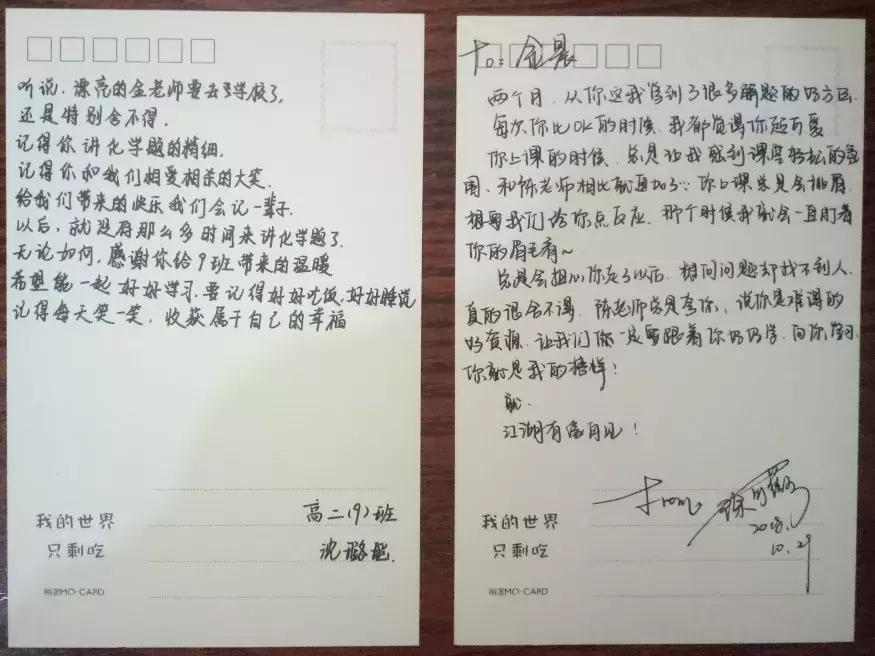 听说，漂亮的金老师要去学校了，
还是特别舍不得．
记得你讲化学题的精细．
记得你和我们相爱相杀的大笑．
给我们带来的快乐我们会记一辈子．
以后，就没有那么多时间来讲化学题了．
无论如何，感谢你给9班带来的温暖
希望能一起好好学习，要记得好好吃饭，好好睡觉
记得每天笑一笑，收获属于自己的幸福
我的世界
只剩吃
高二(9)班
沈璐
MO·CARD
To: 金晨
两个月，从你这我学到了很多解题的好方法．
每次你比OK的时候，我都觉得你超可爱
你上课的时候，总是让我感到课堂轻松的氛
围，和陈老师相比
你上课总是会挑眉，
想要我们给你点反应，那个时候我就会一直盯着
你的眉毛看~
总是会担心你走了以后，想问问题却找不到人，
真的很舍不得，陈老师总是夸你，说你是难得的
好资源，让我们一定要跟着你好好学，向你学习，
你就是我的榜样！
就．
江湖有缘再见！
From
徐
2018.
10.29
我的世界
只剩吃
MO·CARD